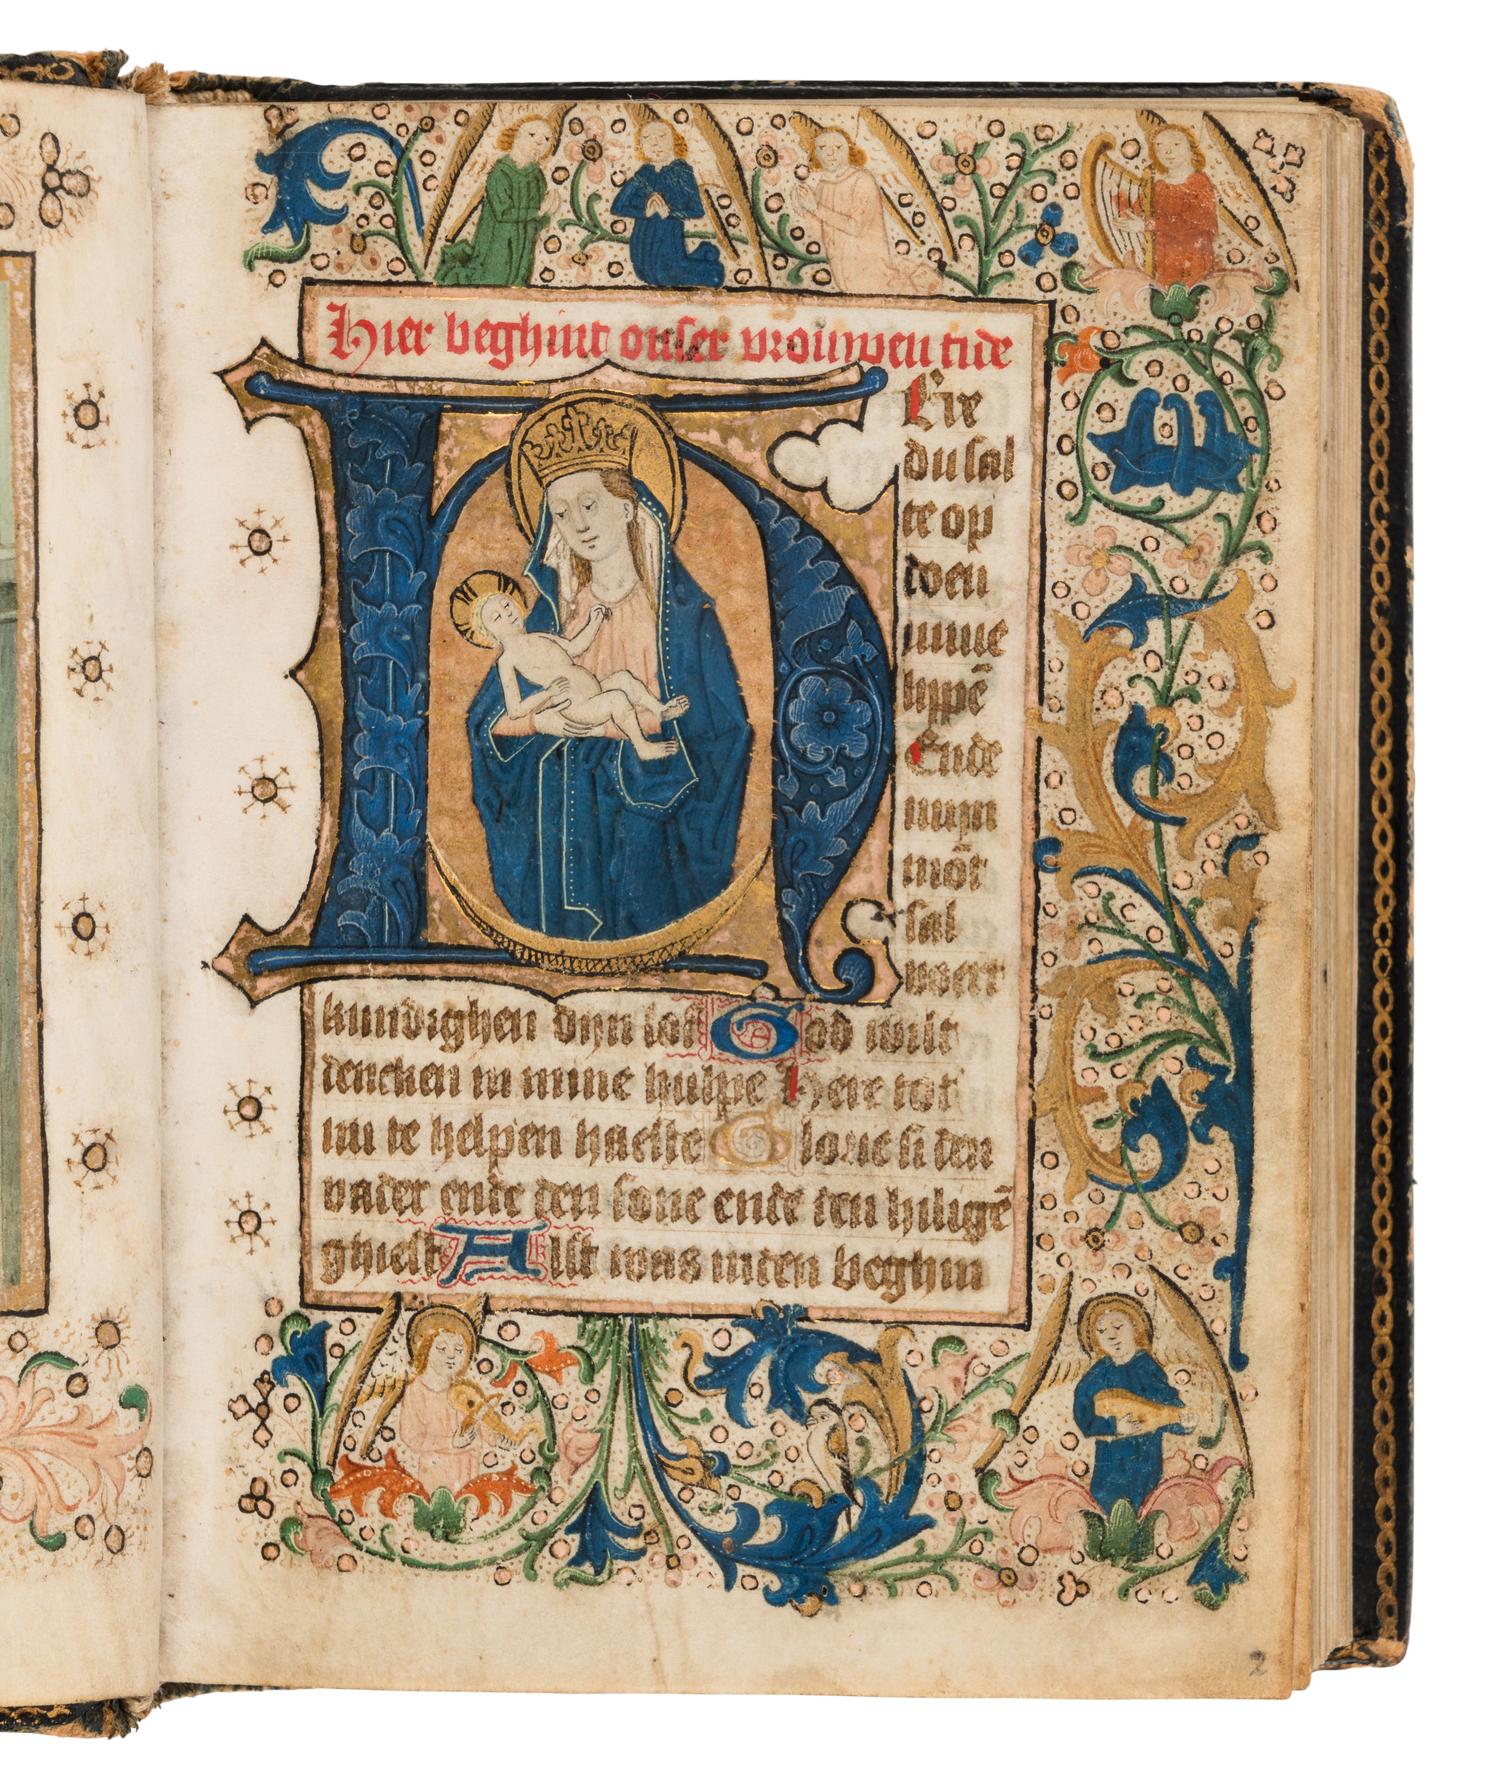 Hier beghint onser vrouwen tide
H Ere
du sal
te op
doen
mine
lippē
Ende
mijn
mōt
sal
voert
kundighen dijn lof God wilt
dencken in mine hulpe Here tot
mi te helpen haeste Glorie si den
vader ende den sone ende den hilighē
ghiest Alst was inden beghin
2